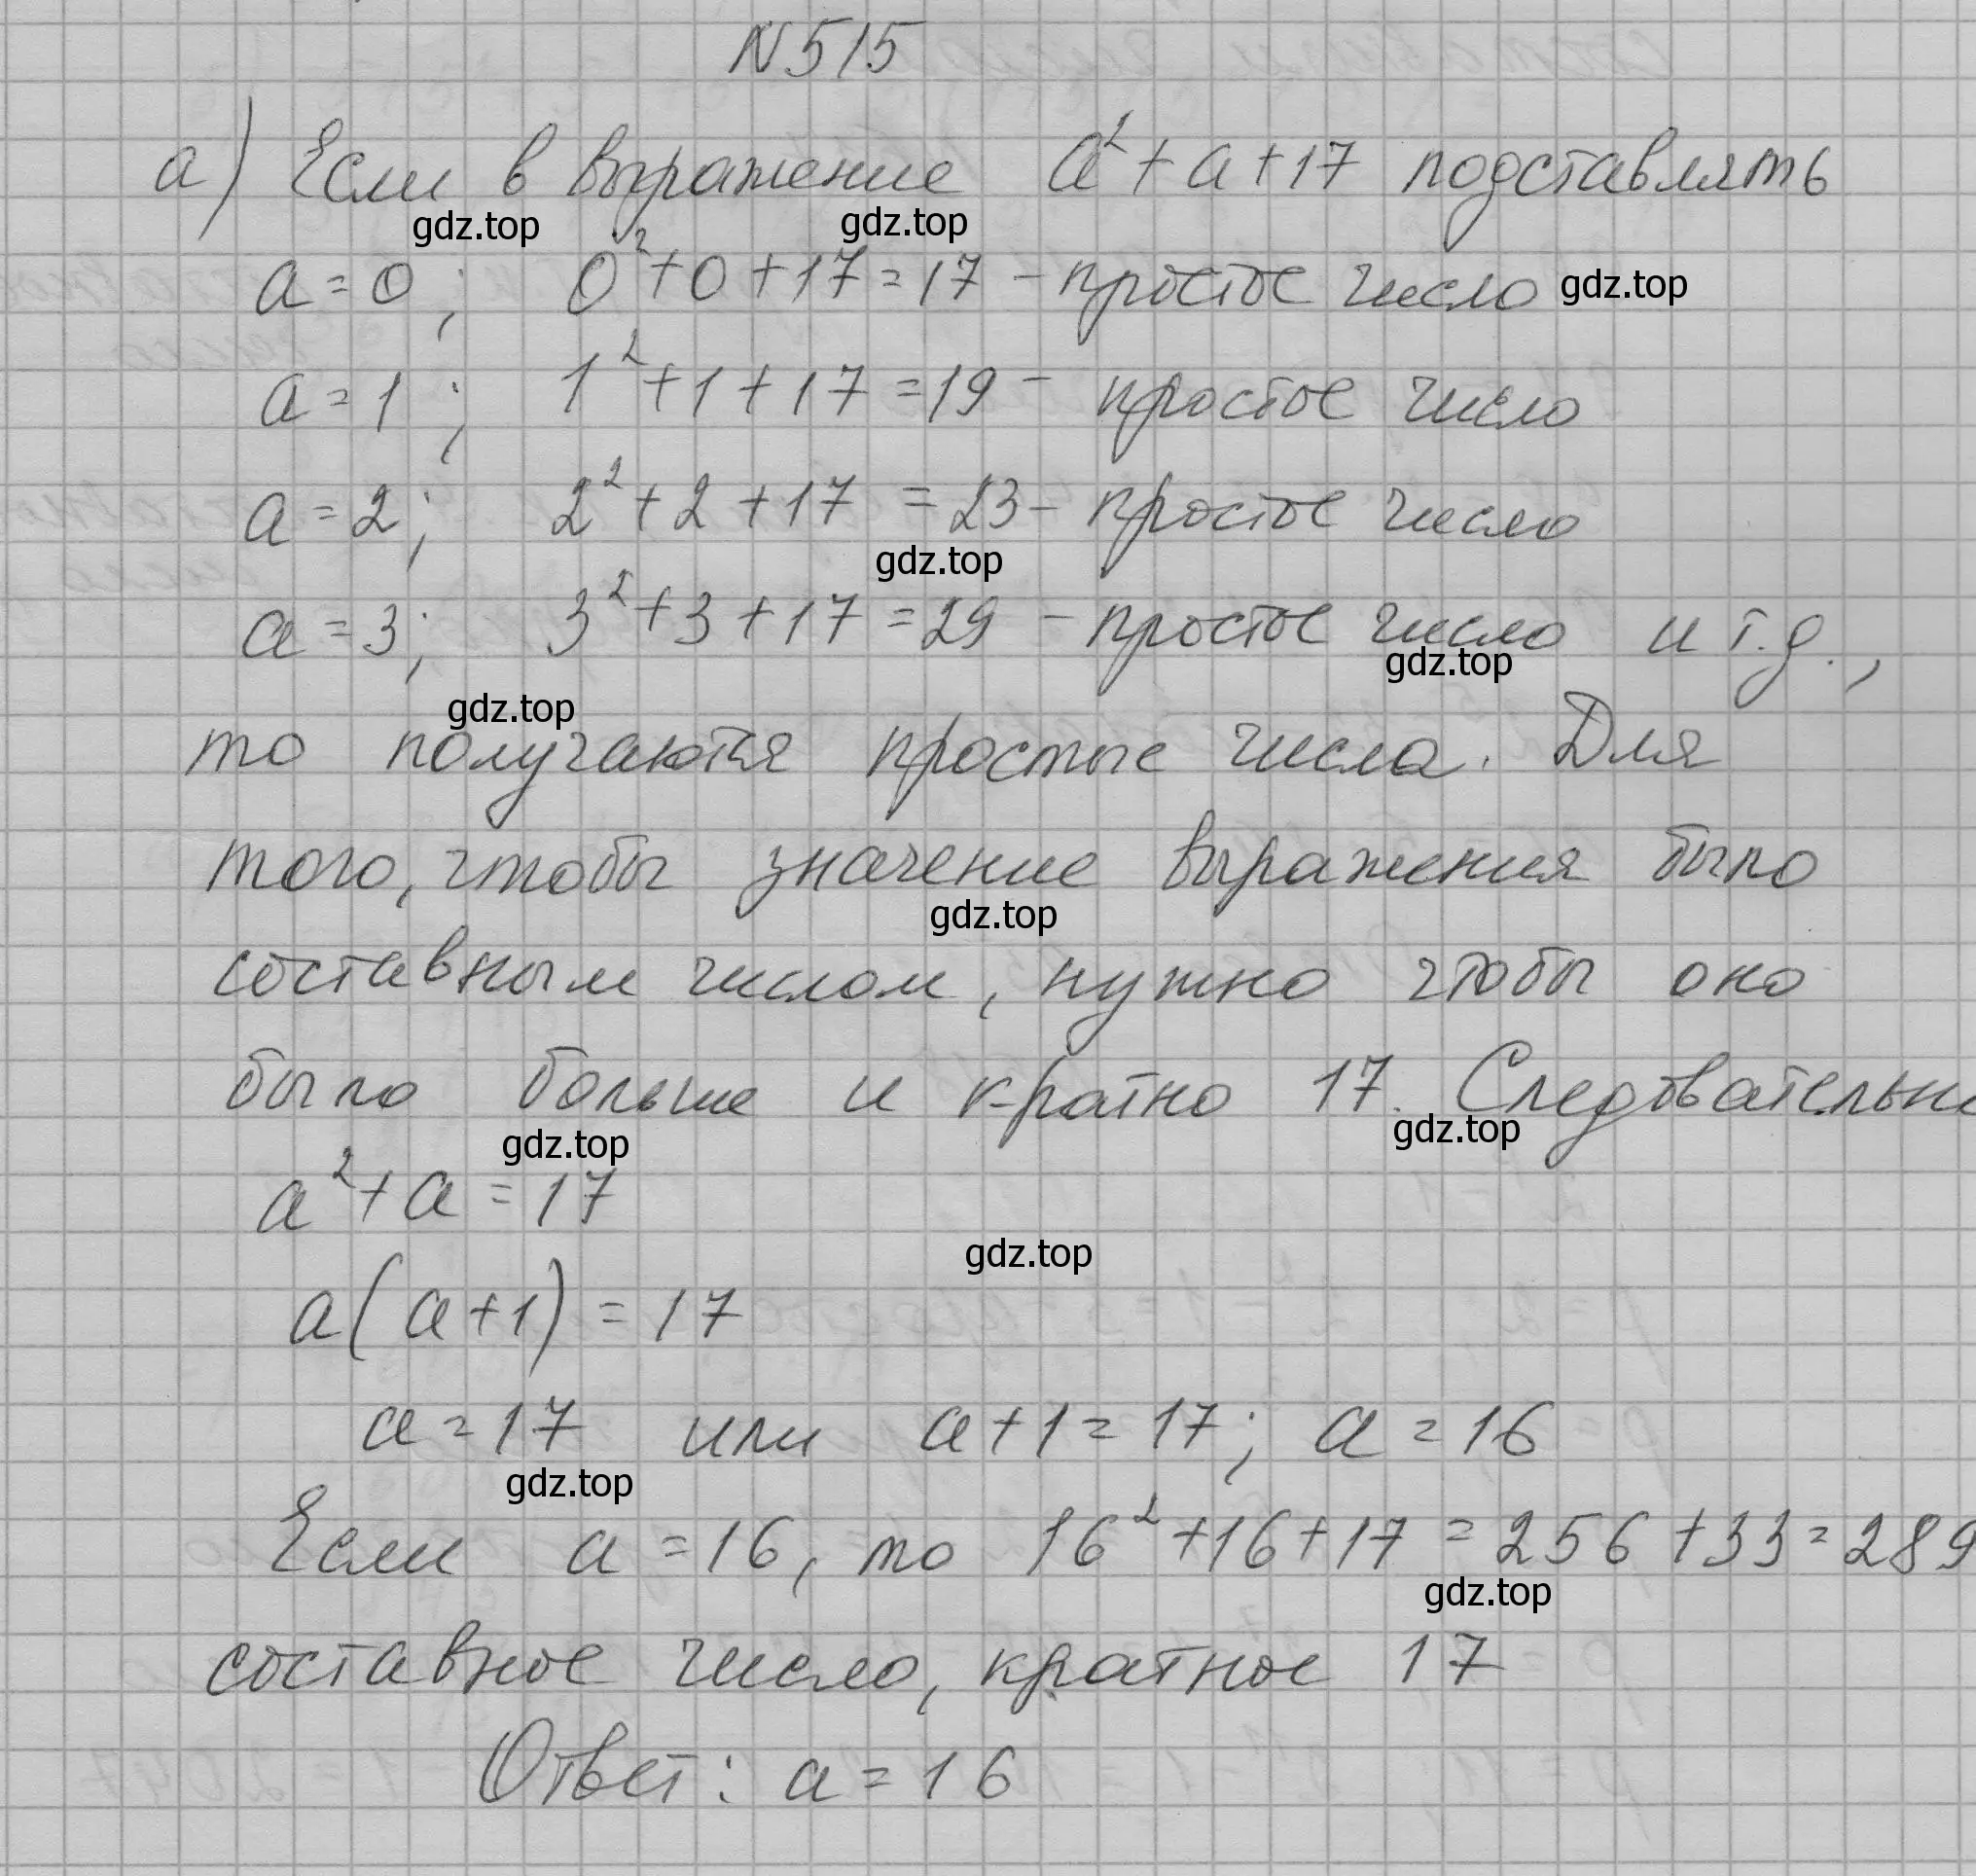 N 515
а) Если в выражение a² + a + 17 подставлять
gdz.top gdz.top
a = 0; 0² + 0 + 17 = 17 - простое число gdz.top
a = 1; 1² + 1 + 17 = 19 - простое число
a = 2; 2² + 2 + 17 = 23 - простое число
gdz.top
a = 3; 3² + 3 + 17 = 29 - простое число и т.д.,
gdz.top
gdz.top
то получаются простые числа. Для
того, чтобы значение выражения было
gdz.top
составным числом, нужно чтобы оно
было больше и кратно 17. Следовательно
gdz.top gdz.top
a² + a = 17
gdz.top
a(a+1) = 17
a = 17 или a + 1 = 17; a = 16
gdz.top
Если a = 16, то 16² + 16 + 17 = 256 + 33 = 289
gdz.top
составное число, кратное 17
Ответ: a = 16